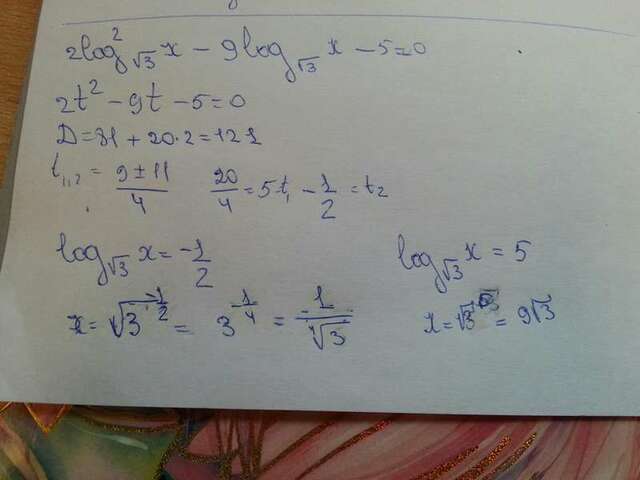 2log²_√3 x − 9log_√3 x − 5 = 0
2t² − 9t − 5 = 0
D = 81 + 20·2 = 121
t₁,₂ = (9 ± 11)/4   20/4 = 5t₁   −1/2 = t₂
log_√3 x = −1/2   log_√3 x = 5
x = √3^(−1/2) = 3^(−1/4) = 1/⁴√3   x = √3^5 = 9√3